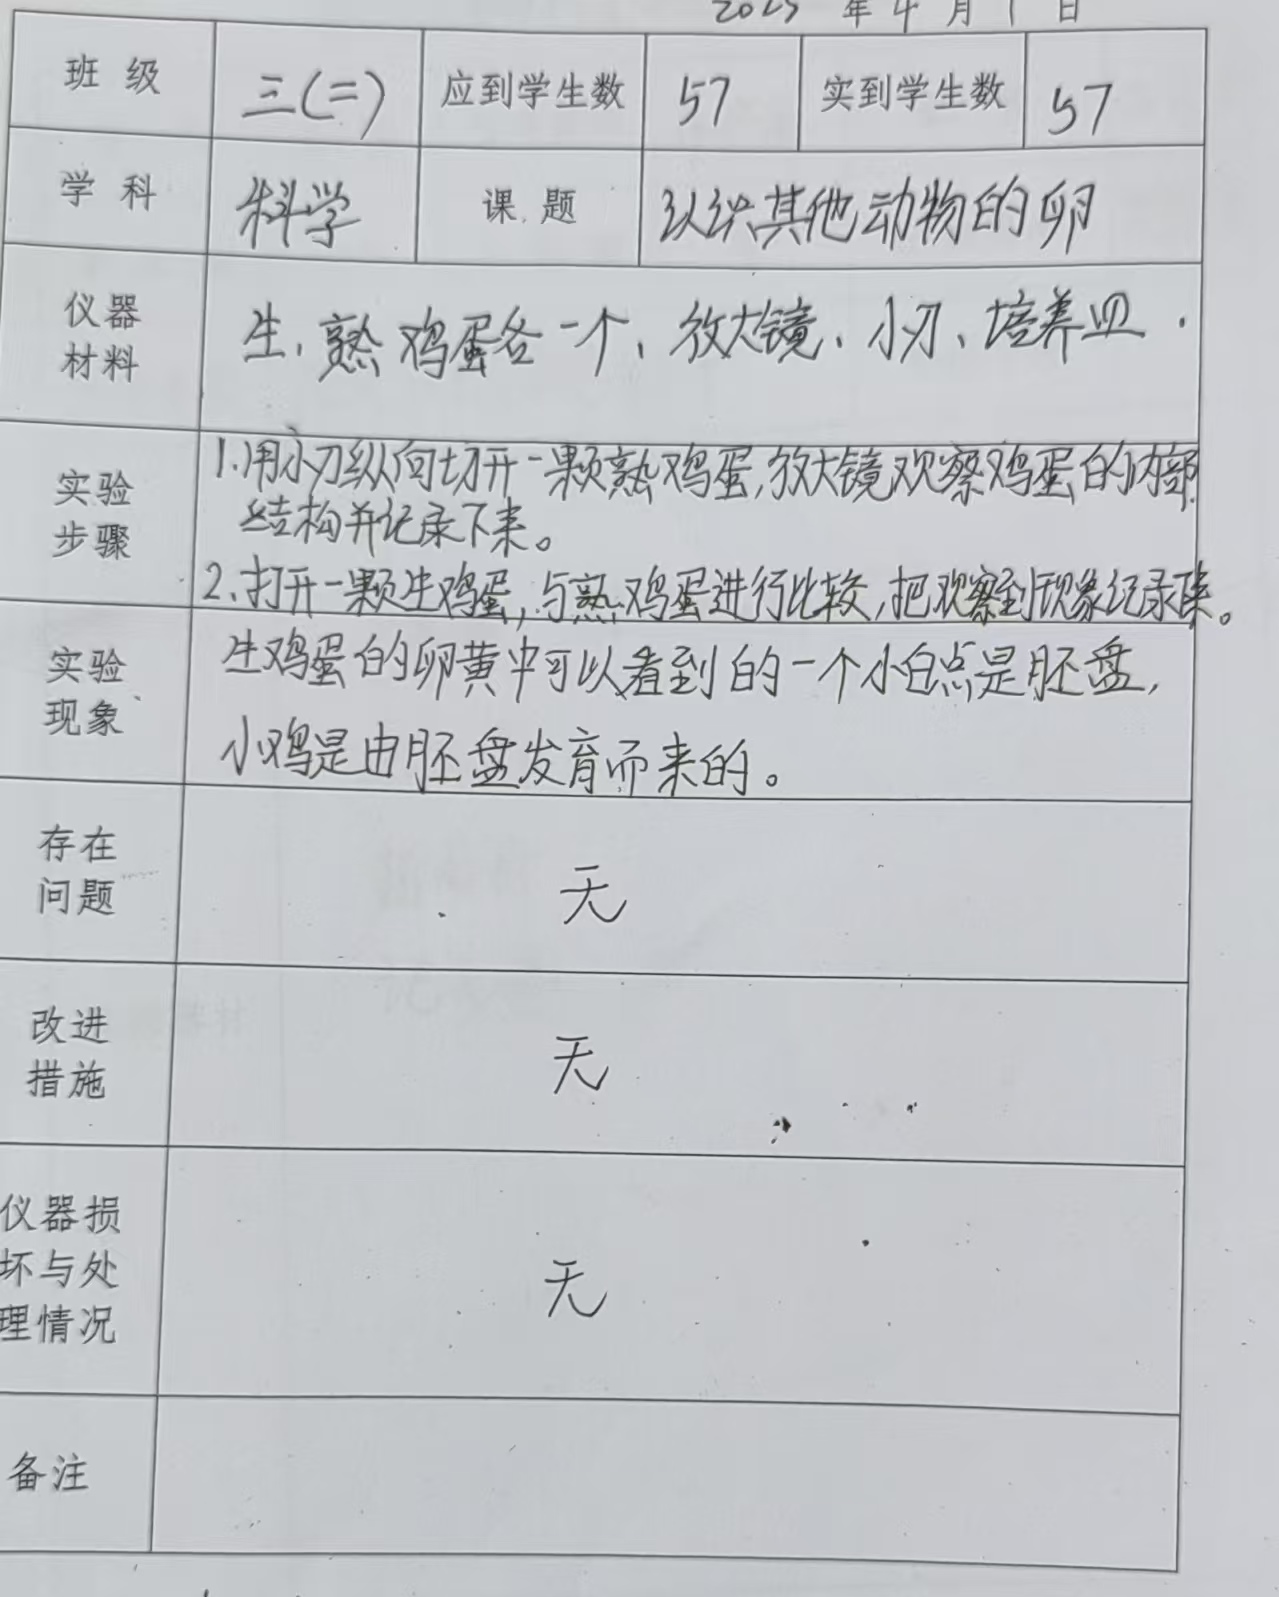 2025 年 4 月 1 日
班 级 三(二) 应到学生数 57 实到学生数 57
学 科 科学 课 题 认识其他动物的卵
仪器
材料
生、熟鸡蛋各一个、放大镜、小刀、培养皿.
实验
步骤
1.用小刀纵向切开一颗熟鸡蛋,放大镜观察鸡蛋的内部
结构并记录下来。
2.打开一颗生鸡蛋,与熟鸡蛋进行比较,把观察到现象记录下来。
实验
现象
生鸡蛋的卵黄中可以看到的一个小白点是胚盘,
小鸡是由胚盘发育而来的。
存在
问题
无
改进
措施
无
仪器损
坏与处
理情况
无
备注